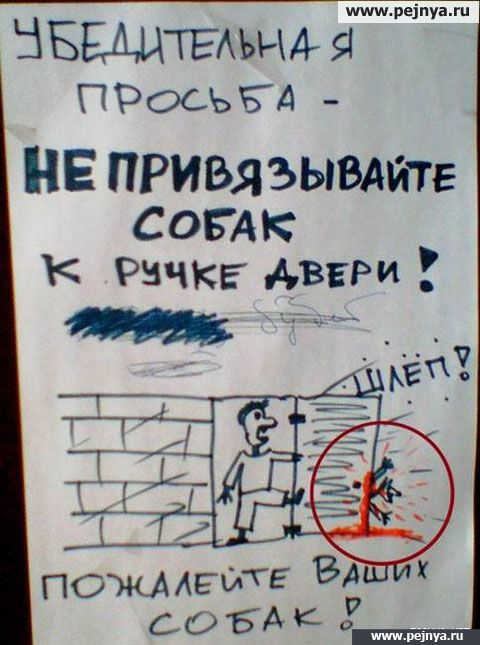 www.pejnya.ru
УБЕДИТЕЛЬНАЯ
ПРОСЬБА -
НЕ ПРИВЯЗЫВАЙТЕ
СОБАК
К РУЧКЕ ДВЕРИ!
ШЛЁП!
ПОЖАЛЕЙТЕ ВАШИХ
СОБАК!
www.pejnya.ru